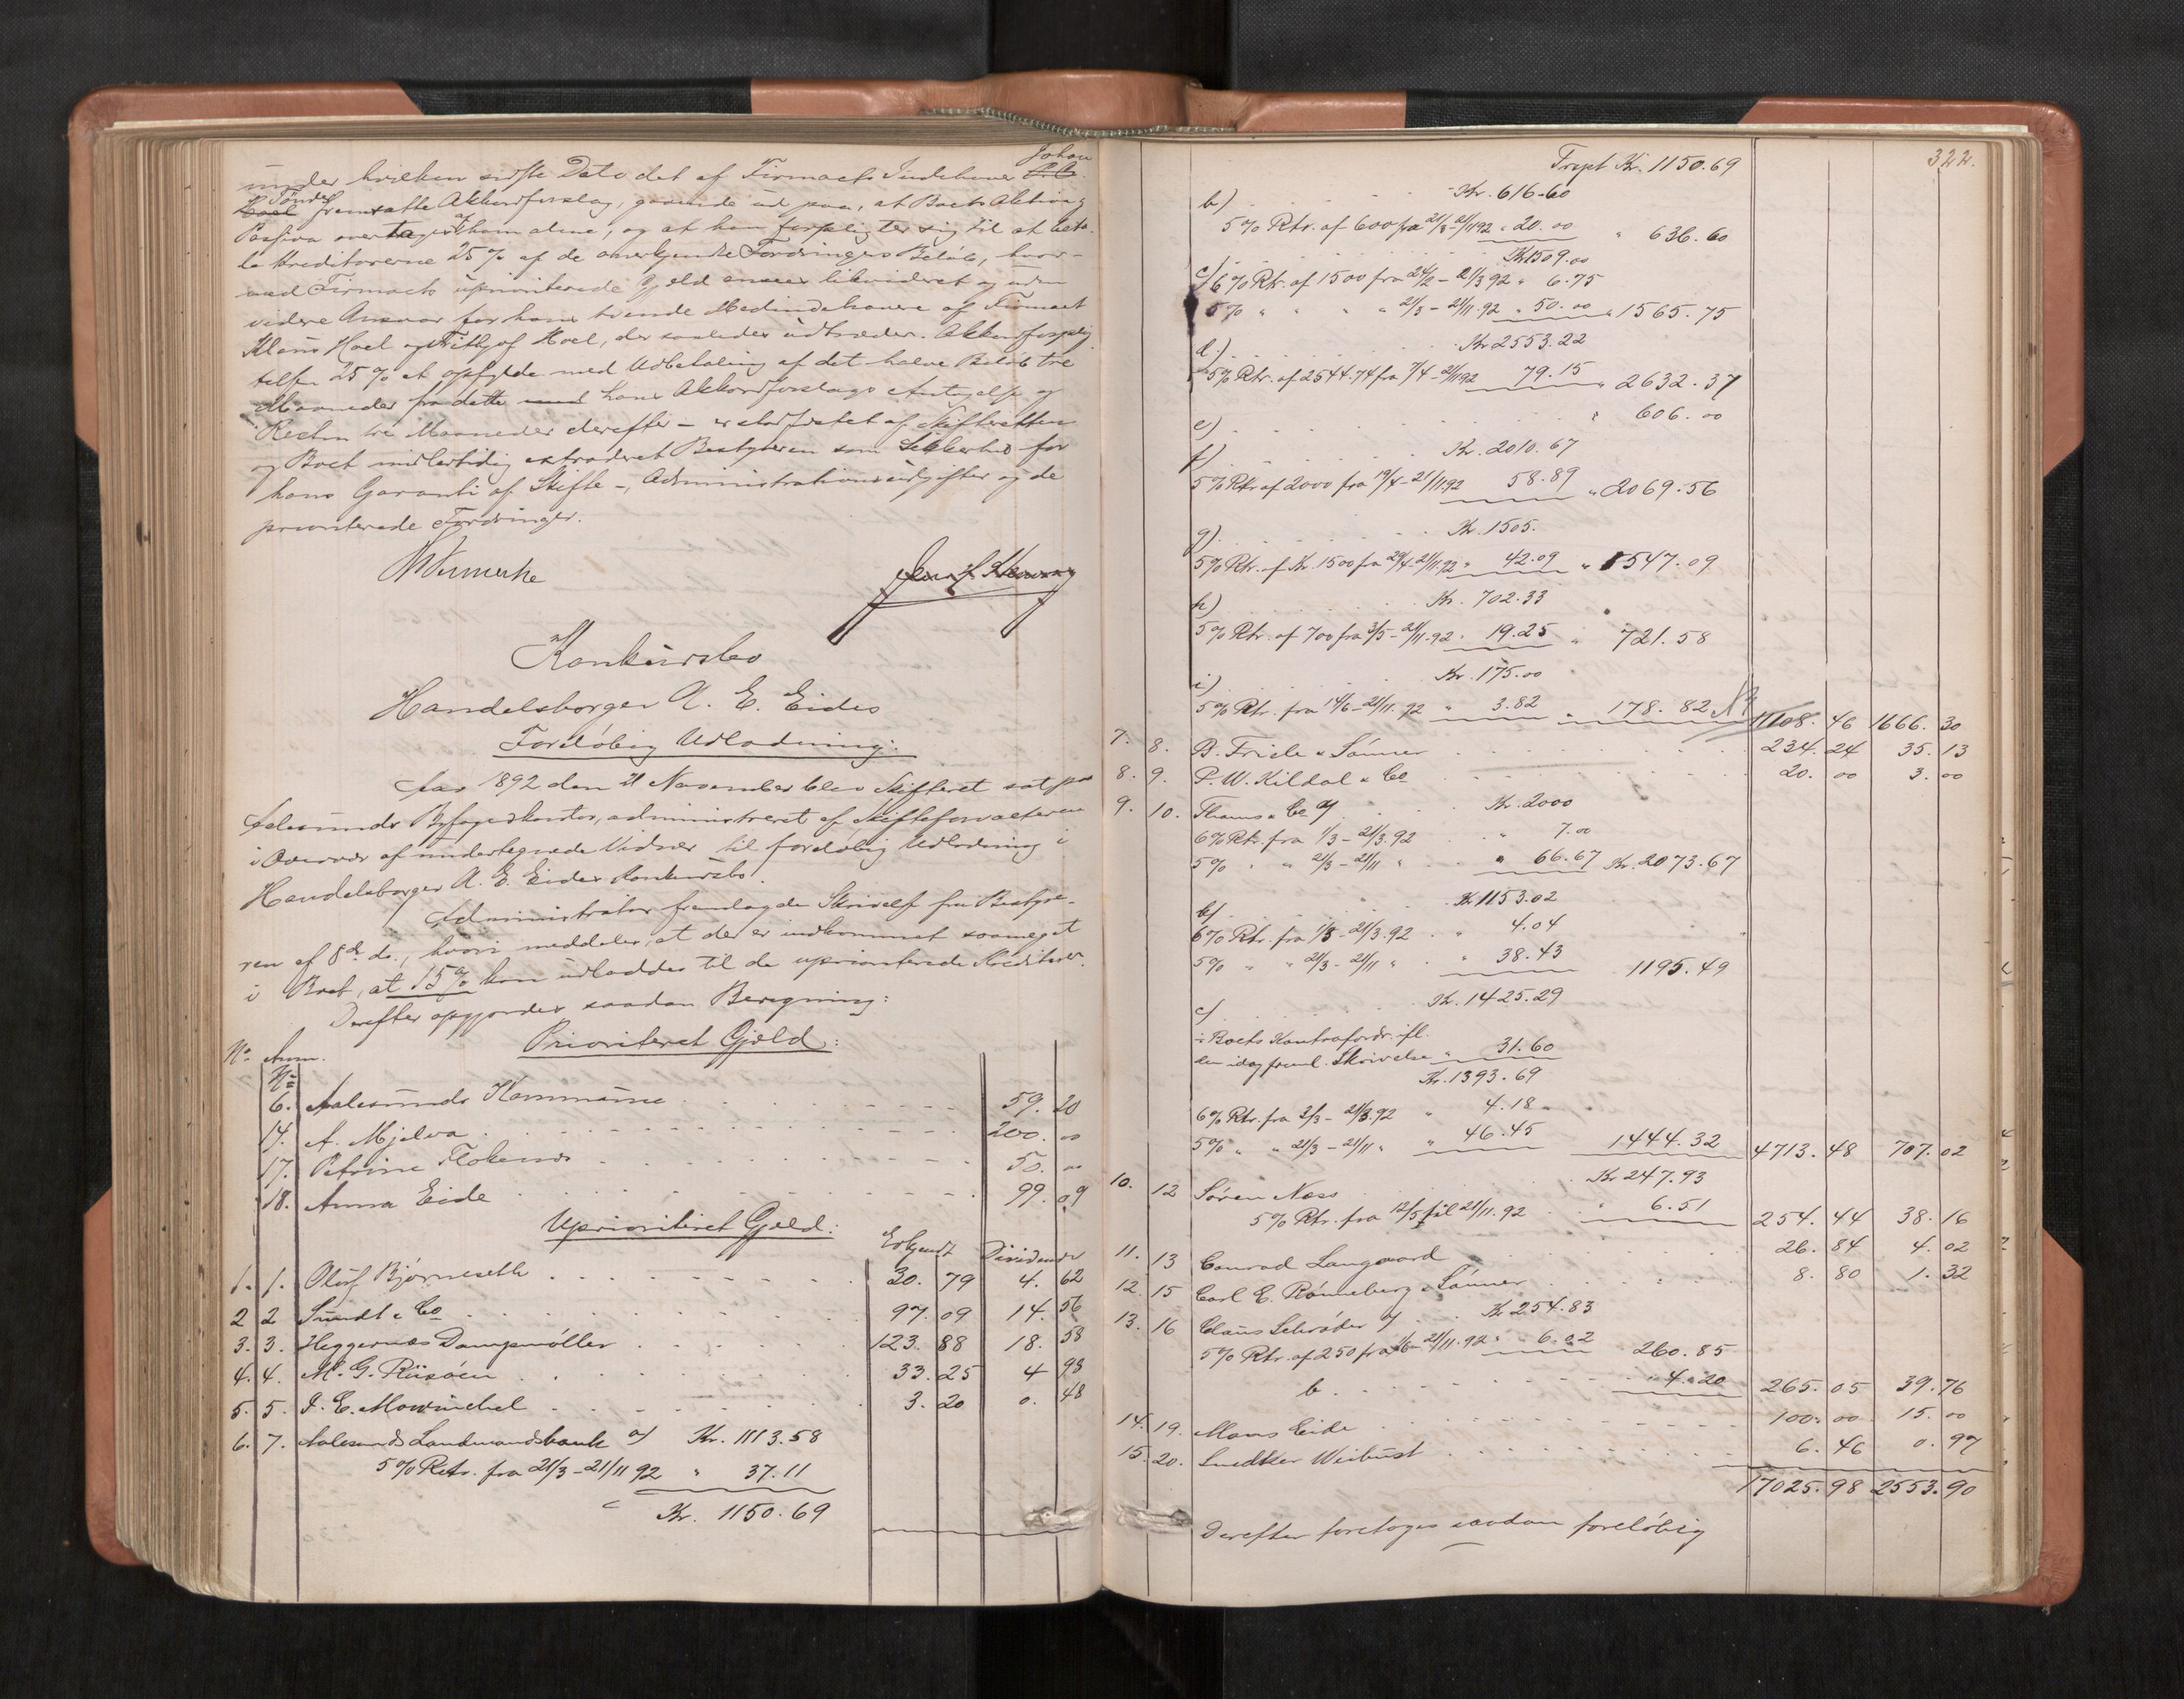 under hvilken sidste Dato det af Firmaets Indehaver Johan
Tønder Hoel fremsatte Akkordforslag, gaaende ud paa, at Boets Aktiva og
Passiva overtages af ham alene, og at han forpligter sig til at beta-
le Kreditorerne 25 % af de anerkjendte Fordringers Beløb, hvor-
ved Firmaets uprioriterede Gjeld ansees likvideret og uden
videre Ansvar for hans tvende Medindehavere af Firmaet
Klaus Hoel og Frithjof Hoel, der saaledes udtræder. Akkordforplig-
telsen 25 % at opfylde med Udbetaling af det halve Beløb tre
Maaneder fra dette hans Akkordforslags Antagelse og
Resten tre Maaneder derefter – er stadfæstet af Skifteretten
og Boet midlertidig extraderet Bestyreren som Sikkerhed for
hans Garanti af Skifte-, Administrationsudgifter og de
prioriterede Fordringer.
Konkursbo
Handelsborger A. E. Eides
Foreløbig Udlodning.
Aar 1892 den 21 November blev Skifteret sat paa
Aalesunds Byfogedkontor, administreret af Skifteforvalteren
i Overvær af undertegnede Vidner til foreløbig Udlodning i
Handelsborger A. E. Eides Konkursbo.
Administrator fremlagde Skrivelse fra Bestyre-
ren af 8de ds., hvori meddeles, at der er indkommet saameget
i Boet, at 15 % kan udloddes til de uprioriterede Kreditorer.
Derefter opgjordes saadan Beregning:
Prioriteret Gjæld:
No Anm.
No
6. Aalesunds Kommune 59. 20
14. A. Mjelva 200. 00
17. Petrine Flokenes 50. 00
18. Anna Eide 99. 09
Uprioriteret Gjæld:
Erkjendt Dividende
1. 1. Oluf Bjørneseth 30. 79 4. 62
2 2 Sundt & Co 97. 09 14. 56
3. 3. Heggernæs Dampmøller 123. 88 18. 58
4. 4. M. G. Riisøen 33. 25 4 98
5. 5. J. E. Mowinckel 3. 20 0. 48
6. 7. Aalesunds Landmandsbank a) Kr. 1113.58
5 % Rtr. fra 21/3 - 21/11 92 " 37.11
Kr. 1150.69
322.
Trspt Kr. 1150.69
b) Kr. 616.60
5 % Rtr. af 600 fra 21/3 - 21/11 92 " 20.00 " 636.60
c) Kr 1509.00
6 % Rtr. af 1500 fra 24/2 - 21/3 92 " 6.75
5 % " " " 21/3 - 21/11.92 " 50.00 " 1565.75
d) Kr 2553.22
5 % Rtr. af 2544.74 fra 7/4 - 21/11 92 79.15 " 2632.37
e) " 606.00
f) Kr. 2010.67
5 % Rtr af 2000 fra 19/4 - 21/11.92 58.89 " 2069.56
g) Kr. 1505.
5 % Rtr. af Kr. 1500 fra 29/4 - 21/11.92 " 42.09 " 1547.09
h) Kr. 702.33
5 % Rtr. af 700 fra 3/5 - 21/11.92 " 19.25 " 721.58
i) Kr. 175.00
5 % Rtr. fra 14/6 - 21/11.92 " 3.82 " 178.82 11108. 46 1666. 30
7. 8. B. Friele & Sønner 234. 24 35. 13
8. 9. P. W. Kildal & Co 20. 00 3. 00
9. 10. Thams & Co a) Kr. 2000
6 % Rtr. fra 1/3 - 21/3.92 " 7.00
5 % " " 21/3 - 21/11 " " 66.67 Kr. 2073.67
b) Kr. 1153.02
6 % Rtr. fra 1/3 - 21/3.92 " 4.04
5 % " " 21/3 - 21/11 " " 38.43 1195.49
c) Kr. 1425.29
÷ Boets Kontrafordr. ifl.
den idag freml. Skrivelse " 31.60
Kr. 1393.69
6 % Rtr. fra 3/3 - 21/3.92 " 4.18
5 % " " 21/3 - 21/11 " " 46.45 1444.32 4713. 48 707. 02
10. 12 Søren Næss Kr 247.93
5 % Rtr. fra 12/5 til 21/11.92 " 6.51 254. 44 38. 16
11. 13 Conrad Langaard 26. 84 4. 02
12. 15 Carl E. Rønneberg & Sønner 8. 80 1. 32
13. 16 Claus Schrøder a) Kr 254.83
5 % Rtr. af 250 fra 1/6 - 21/11.92 " 6.02 260.85
b. " 4.20 265. 05 39. 76
14. 19. Mons Eide 100. 00 15. 00
15. 20. Snedker Weibust 6. 46 0. 97
17025. 98 2553. 90
Derefter foretoges saadan foreløbig